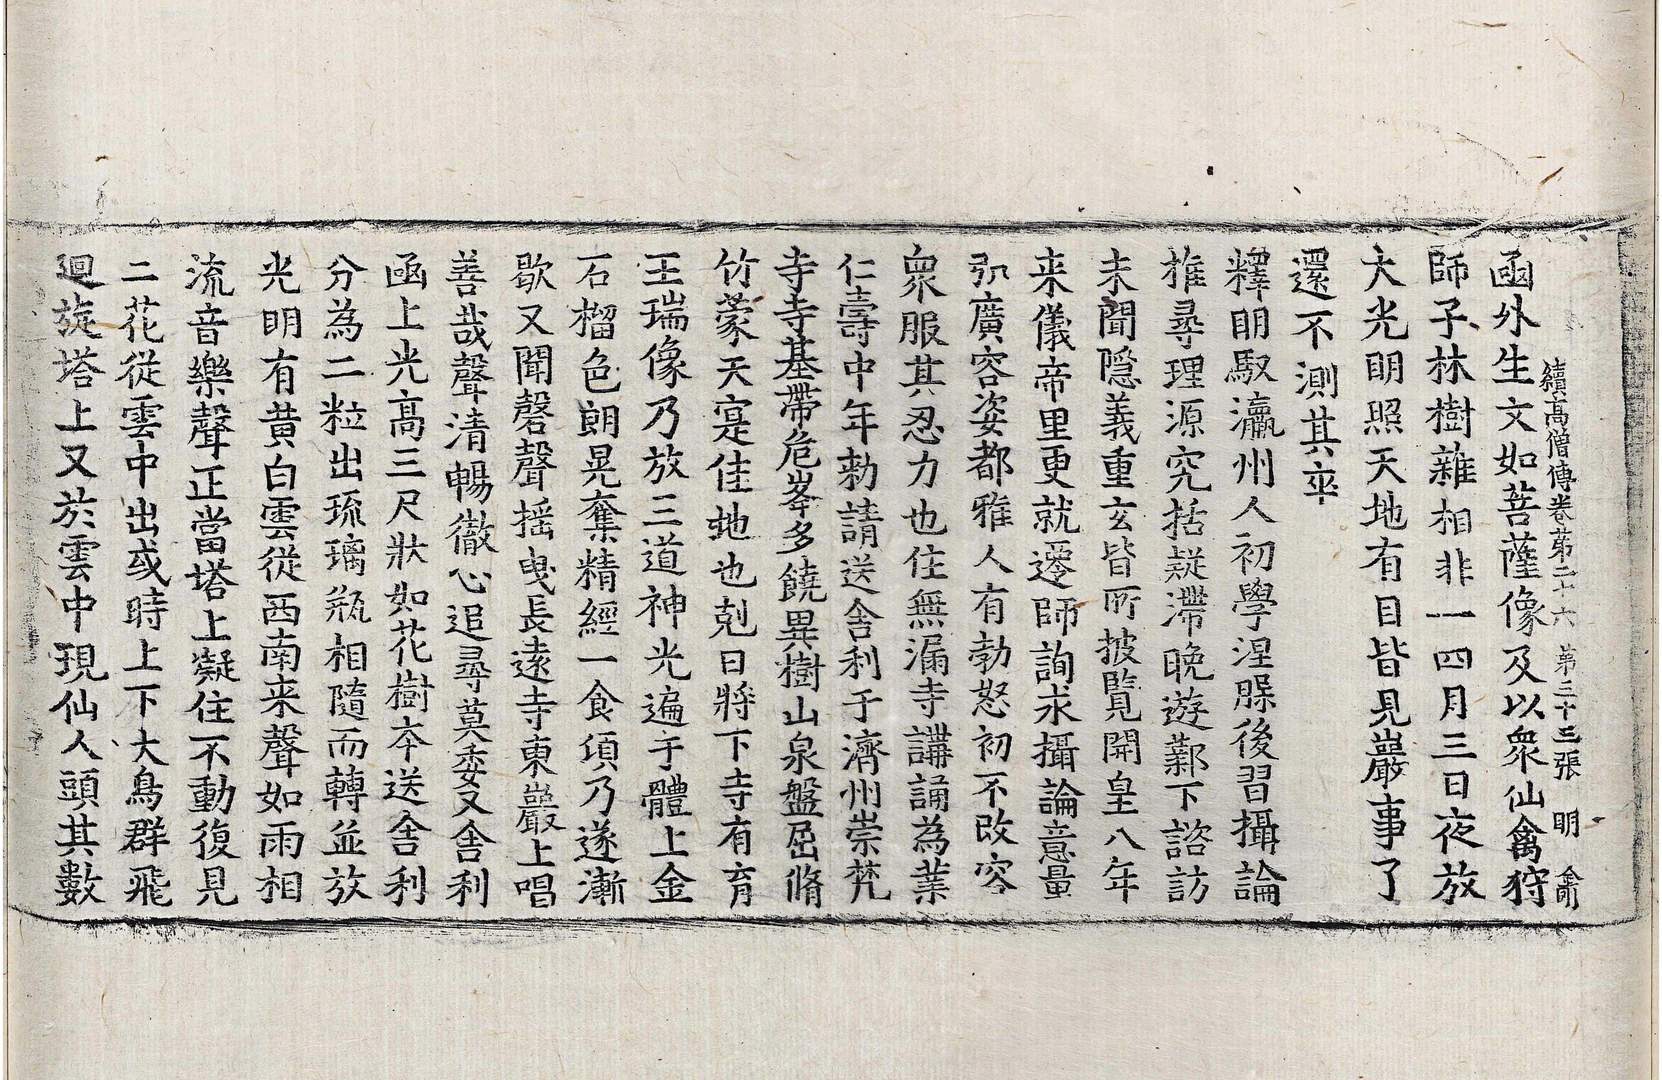 續高僧傳卷苐二十六 第三十三張 明
函外生文如菩薩像及以衆仙禽狩
師子林樹雜相非一四月三日夜放
大光明照天地有目皆見巖事了
還不測其卒
釋明馭瀛州人初學涅槃後習攝論
推尋理源究括疑滯晩遊鄴下諮訪
未聞隱義重玄皆所披覽開皇八年
来儀帝里更就遷師詢求攝論意量
弘廣容姿都雅人有勃怒初不改容
衆服其忍力也住無漏寺講誦為業
仁壽中年勑請送舍利于濟州崇梵
寺寺基帶危峯多饒異樹山泉盤屈脩
竹蒙天寔佳地也剋日將下寺有育
王瑞像乃放三道神光遍于體上金
石榴色朗晃奪精經一食頃乃遂漸
歇又聞磬聲揺曳長遠寺東巖上唱
善哉聲清暢徹心追尋莫委又舍利
函上光高三尺狀如花樹夲送舍利
分為二粒出琉璃瓶相隨而轉並放
光明有黄白雲從西南来聲如雨相
流音樂聲正當塔上凝住不動復見
二花從雲中出或時上下大鳥群飛
廻旋塔上又於雲中現仙人頭其數